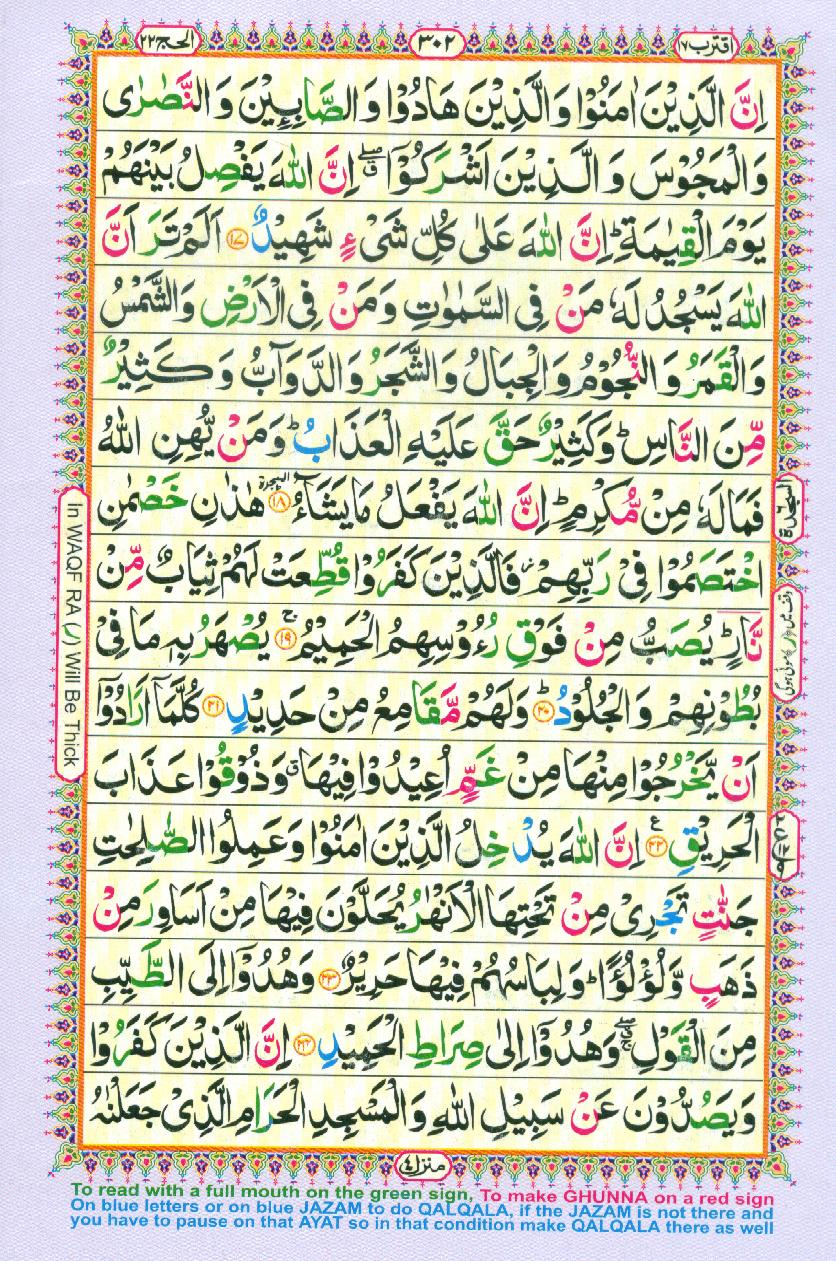 اقترب ١٧
٣٠٢
الحج ٢٢
اِنَّ الَّذِيْنَ اٰمَنُوْا وَالَّذِيْنَ هَادُوْا وَالصَّابِـِٕيْنَ وَالنَّصٰرٰى
وَالْمَجُوْسَ وَ الَّذِيْنَ اَشْرَكُوْۤا ۖۗ اِنَّ اللّٰهَ يَفْصِلُ بَيْنَهُمْ
يَوْمَ الْقِيٰمَةِ ؕ اِنَّ اللّٰهَ عَلٰى كُلِّ شَىْءٍ شَهِيْدٌ ۝١٧ اَلَمْ تَرَ اَنَّ
اللّٰهَ يَسْجُدُ لَهٗ مَنْ فِى السَّمٰوٰتِ وَمَنْ فِى الْاَرْضِ وَالشَّمْسُ
وَالْقَمَرُ وَالنُّجُوْمُ وَالْجِبَالُ وَالشَّجَرُ وَالدَّوَآبُّ وَكَثِيْرٌ
مِّنَ النَّاسِ ؕ وَكَثِيْرٌ حَقَّ عَلَيْهِ الْعَذَابُ ؕ وَمَنْ يُّهِنِ اللّٰهُ
فَمَا لَهٗ مِنْ مُّكْرِمٍ ؕ اِنَّ اللّٰهَ يَفْعَلُ مَا يَشَآءُ ۝١٨ هٰذٰنِ خَصْمٰنِ
السجدة
اخْتَصَمُوْا فِىْ رَبِّهِمْ ز فَالَّذِيْنَ كَفَرُوْا قُطِّعَتْ لَهُمْ ثِيَابٌ مِّنْ
نَّارٍ ؕ يُصَبُّ مِنْ فَوْقِ رُءُوْسِهِمُ الْحَمِيْمُ ۝١٩ يُصْهَرُ بِهٖ مَا فِىْ
بُطُوْنِهِمْ وَالْجُلُوْدُ ۝٢٠ وَلَهُمْ مَّقَامِعُ مِنْ حَدِيْدٍ ۝٢١ كُلَّمَاۤ اَرَادُوْۤا
اَنْ يَّخْرُجُوْا مِنْهَا مِنْ غَمٍّ اُعِيْدُوْا فِيْهَا ۗ وَذُوْقُوْا عَذَابَ
الْحَرِيْقِ ۝٢٢ اِنَّ اللّٰهَ يُدْخِلُ الَّذِيْنَ اٰمَنُوْا وَعَمِلُوا الصّٰلِحٰتِ
جَنّٰتٍ تَجْرِىْ مِنْ تَحْتِهَا الْاَنْهٰرُ يُحَلَّوْنَ فِيْهَا مِنْ اَسَاوِرَ مِنْ
ذَهَبٍ وَّلُؤْلُؤًا ؕ وَلِبَاسُهُمْ فِيْهَا حَرِيْرٌ ۝٢٣ وَهُدُوْۤا اِلَى الطَّيِّبِ
مِنَ الْقَوْلِ ۖۚ وَهُدُوْۤا اِلٰى صِرَاطِ الْحَمِيْدِ ۝٢٤ اِنَّ الَّذِيْنَ كَفَرُوْا
وَيَصُدُّوْنَ عَنْ سَبِيْلِ اللّٰهِ وَالْمَسْجِدِ الْحَرَامِ الَّذِىْ جَعَلْنٰهُ
منزل ٤
In WAQF RA (ر) Will Be Thick
To read with a full mouth on the green sign, To make GHUNNA on a red sign
On blue letters or on blue JAZAM to do QALQALA, if the JAZAM is not there and
you have to pause on that AYAT so in that condition make QALQALA there as well